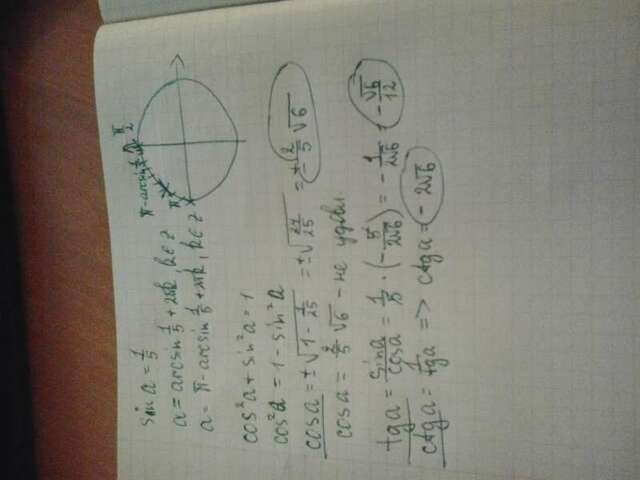 sin a = 1/5
a = arcsin 1/5 + 2πk, k ∈ Z
a = π - arcsin 1/5 + 2πk, k ∈ Z
π - arcsin 1/5
π/2
π
cos²a + sin²a = 1
cos²a = 1 - sin²a
cos a = ±√(1 - 1/25) = ±√(24/25) = ± 2/5 √6
cos a = 2/5 √6 - не удовл.
tg a = sin a/cos a = 1/5 · (-5/2√6) = - 1/2√6 = - √6/12
ctg a = 1/tg a => ctg a = - 2√6